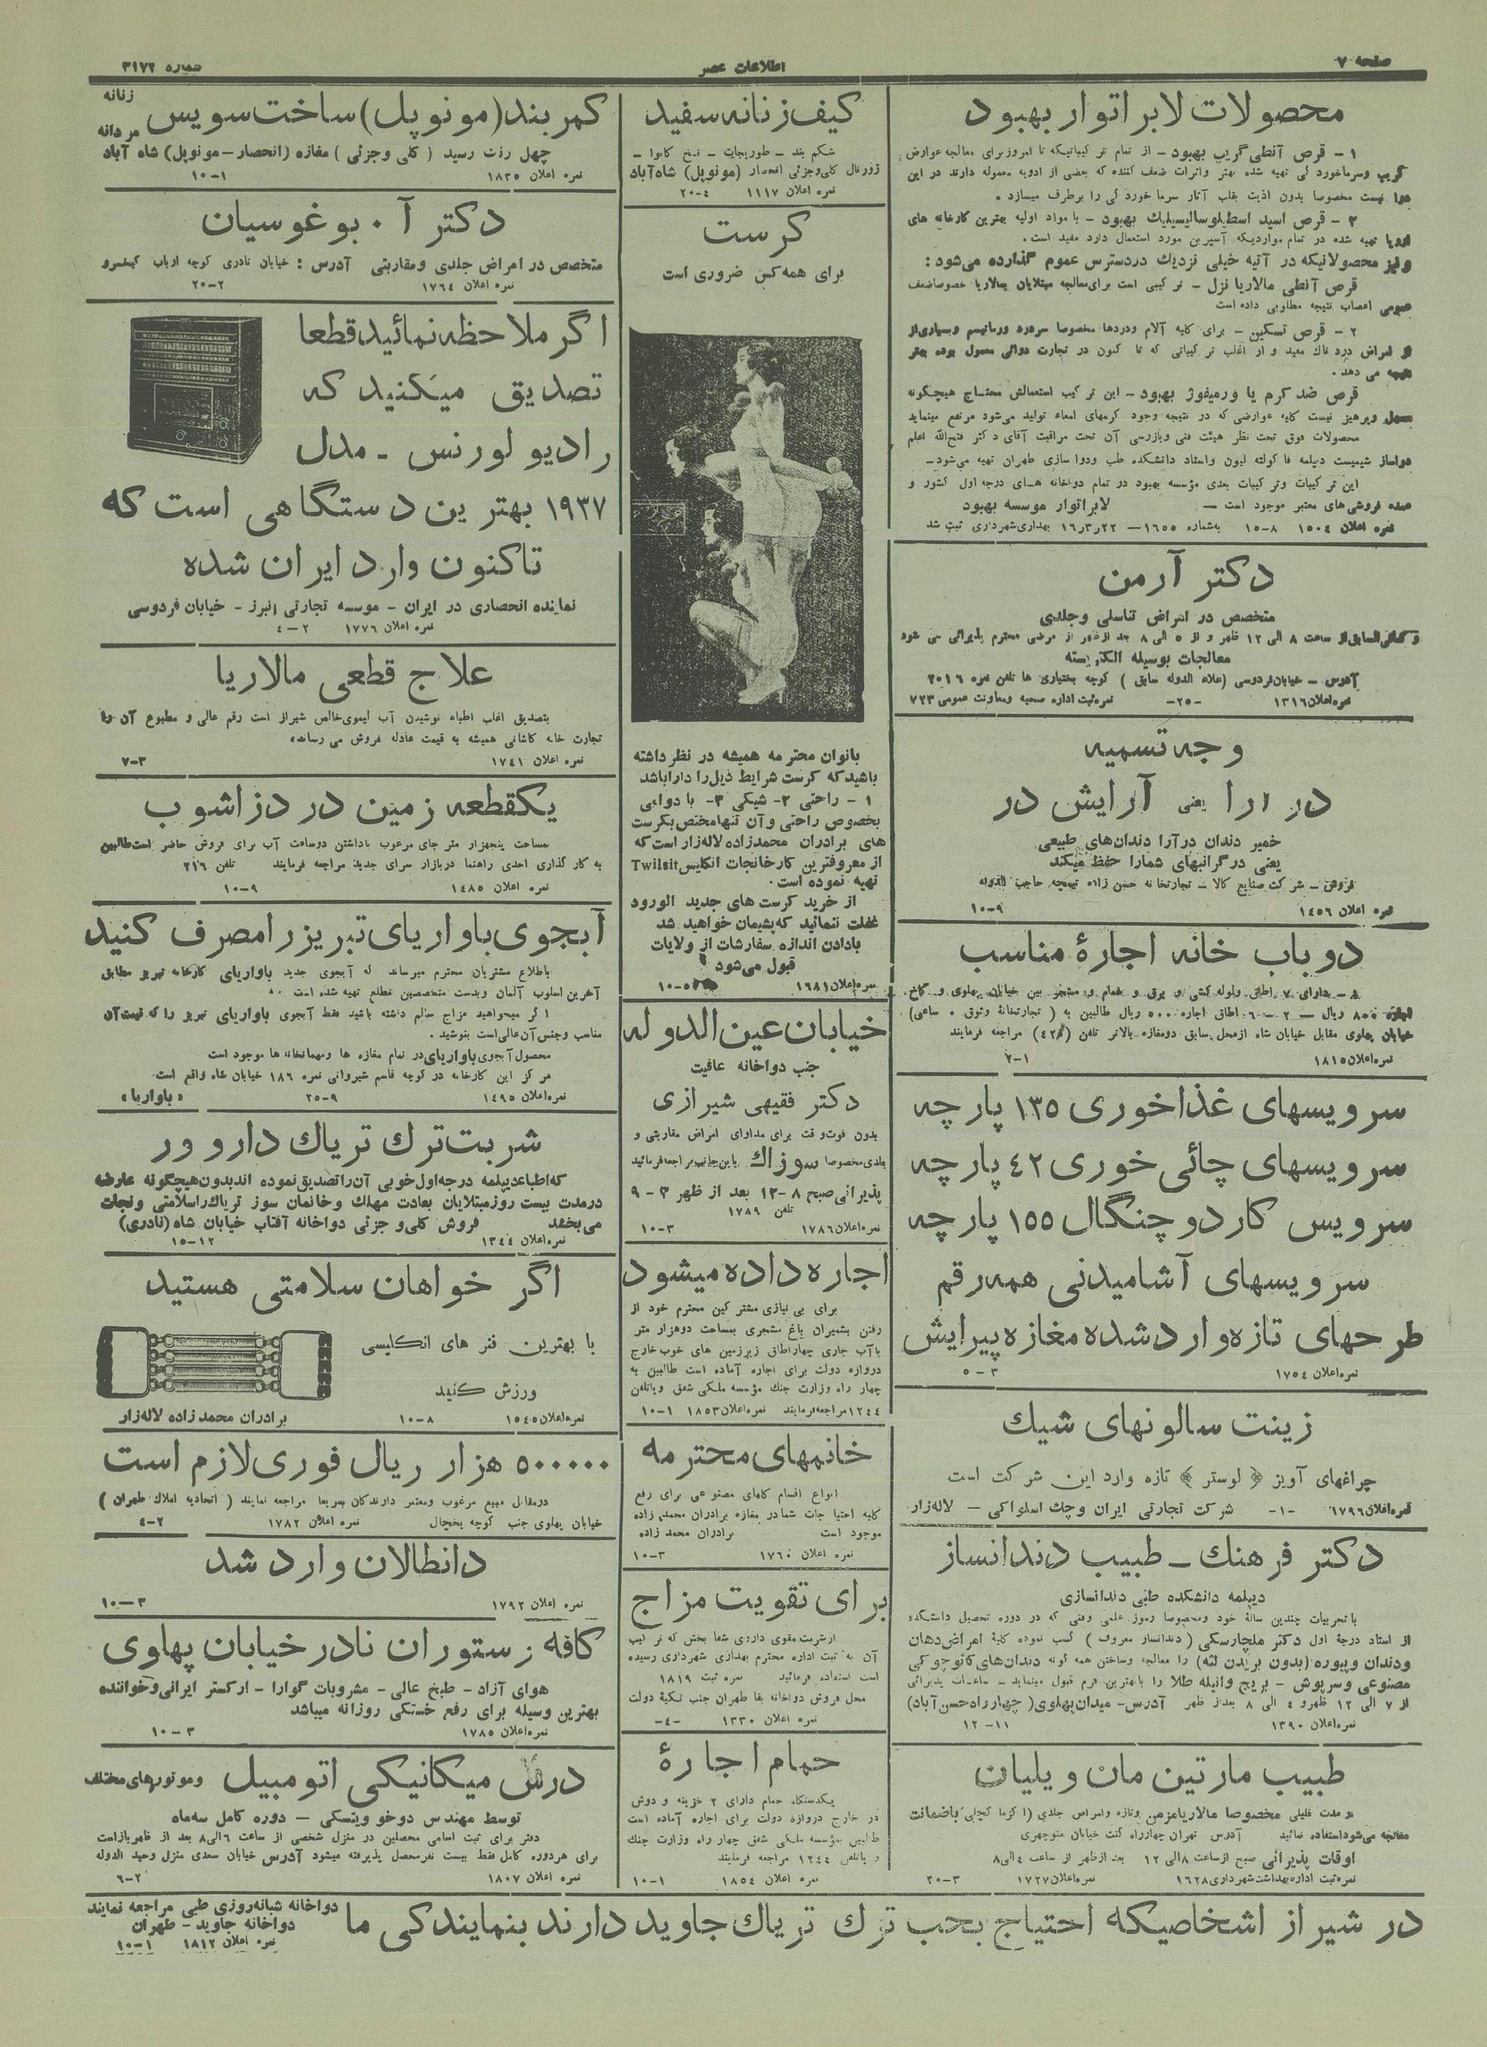 صفحه ۷
اطلاعات عصر
شماره ۳۱۷۲
محصولات لابراتوار بهبود
۱ - قرص آنطی گریپ بهبود - از تمام ترکیباتیکه تا امروز برای معالجه عوارض
گریپ وسرماخوردگی تهیه شده بهتر واثرات ضعف کننده که بعضی از ادویه معموله دارند در این
دوا نیست مخصوصا بدون اذیت بقلب آثار سرما خوردگی را برطرف میسازد .
۲ - قرص اسید استیلوسالیسیلیك بهبود - با مواد اولیه بهترین کارخانه های
اروپا تهیه شده در تمام مواردیکه آسپرین مورد استعمال دارد مفید است .
ونیز محصولاتیکه در آتیه خیلی نزدیك دردسترس عموم گذارده می‌شود :
قرص آنطی مالاریا نزل - ترکیبی است برای معالجه مبتلایان بمالاریا خصوصا ضعف
عمومی اعصاب نتیجه مطلوبی داده است
۲ - قرص تسکین - برای کلیه آلام ودردها مخصوصا سردرد ورماتیسم وبسیاری از
امراض درد ناك مفید و از اغلب ترکیباتی که تا کنون در تجارت دوائی معمول بوده بهتر
نتیجه می دهد .
قرص ضد کرم یا ورمیفوژ بهبود - این ترکیب استعمالش محتاج هیچگونه
مسهل وپرهیز نیست کلیه عوارضی که در نتیجه وجود کرمهای امعاء تولید می‌شود مرتفع مینماید
محصولات فوق تحت نظر هیئت فنی وبازرسی آن تحت مراقبت آقای دکتر فتح‌الله اعلم
دواساز شیمیست دیپلمه فاکولته لیون واستاد دانشکده طب ودواسازی طهران تهیه می‌شود -
این ترکیبات وترکیبات بعدی مؤسسه بهبود در تمام دواخانه های درجه اول کشور و
عمده فروشی‌های معتبر موجود است - لابراتوار موسسه بهبود
نمره اعلان ۱۵۰۴ ۸-۱۵ به‌شماره ۱۶۵۵ - ۱۶٫۳٫۲۲ بهداری شهرداری ثبت شد
دکتر آرمن
متخصص در امراض تناسلی وجلدی
کمافی‌السابق از ساعت ۸ الی ۱۲ ظهر و از ۵ الی ۸ بعد از ظهر از مرضی محترم پذیرائی می شود
معالجات بوسیله الکتریسته
آدرس - خیابان فردوسی (علاء الدوله سابق ) کوچه بختیاری ها تلفن نمره ۲۰۱۶
نمره اعلان ۱۳۱۶ -۲۵- نمره ثبت اداره صحیه ومعاونت عمومی ۷۲۳
وجه تسمیه
در آرا یعنی آرایش در
خمیر دندان درآرا دندان‌های طبیعی
یعنی درگرانبهای شمارا حفظ میکند
فروش - شرکت صنایع کالا - تجارتخانه حسن زاده تیمچه حاجب الدوله
نمره اعلان ۱۴۵۶ ۹-۱۰
دوباب خانه اجارهٔ مناسب
۸ - دارای ۷ اطاق ولوله کشی و برق و حمام و مشجر بین خیابان پهلوی و کاخ
اجاره ۸۵۰ ریال - ۲ - ۶ اطاق اجاره ۵۰۰ ریال طالبین به ( تجارتخانهٔ وثوق . ساعی)
خیابان پهلوی مقابل خیابان شاه ازمحل سابق دومغازه بالاتر تلفن مراجعه فرمایند
نمره اعلان ۱۸۱۵ ۱-۲
سرویسهای غذاخوری ۱۳۵ پارچه
سرویسهای چائی خوری ۴۲ پارچه
سرویس کارد و چنگال ۱۵۵ پارچه
سرویسهای آشامیدنی همه رقم
طرحهای تازه وارد شده مغازه پیرایش
نمره اعلان ۱۷۵۴ ۳-۵
زینت سالونهای شیك
چراغهای آویز ﴿ لوستر ﴾ تازه وارد این شرکت است
نمره اعلان ۱۷۹۶ -۱- شرکت تجارتی ایران وچك اسلواکی - لاله‌زار
دکتر فرهنك - طبیب دندانساز
دیپلمه دانشکده طبی دندانسازی
با تجربیات چندین سالهٔ خود ومخصوصا رموز علمی وفنی که در دوره تحصیل دانشکده
از استاد درجهٔ اول دکتر ملچارسکی ( دندانساز معروف ) کسب نموده کلیهٔ امراض دهان
ودندان وپیوره (بدون بریدن لثه) را معالجه وساختن همه گونه دندان‌های کائوچوکی
مصنوعی وسرپوش - بریج وانیله طلا را بابهترین فرم قبول مینماید - ساعات پذیرائی
از ۷ الی ۱۲ ظهر و ۴ الی ۸ بعد از ظهر آدرس - میدان پهلوی ( چهارراه حسن آباد)
نمره اعلان ۱۳۹۰ ۱۱-۱۲
طبیب مارتین مان ویلیان
در مدت قلیلی مخصوصا مالاریامزمن وتازه وامراض جلدی (اکزما کچلی) باضمانت
معالجه می‌شود استفاده نمائید آدرس تهران چهارراه کنت خیابان منوچهری
اوقات پذیرائی صبح از ساعت ۸ الی ۱۲ بعد از ظهر از ساعت ۴ الی ۸
نمره ثبت اداره بهداشت شهرداری ۱۶۲۸ نمره اعلان ۱۷۲۷ ۳-۲۰
کیف زنانه سفید
شکم بند - طوریجات - نخ کاموا -
ژورنال کلی وجزئی انحصار (مونوپل) شاه‌آباد
نمره اعلان ۱۱۱۷ ۴-۲۰
کرست
برای همه کس ضروری است
بانوان محترمه همیشه در نظر داشته
باشید که کرست شرایط ذیل را دارا باشد
۱ - راحتی ۲- شیکی ۳- با دوامی
بخصوص راحتی وآن تنها مختص بکرست
های برادران محمدزاده لاله‌زار است که
از معروفترین کارخانجات انگلیس Twilsit
تهیه نموده است .
از خرید کرست های جدید الورود
غفلت ننمائید که پشیمان خواهید شد
بادادن اندازه سفارشات از ولایات
قبول می‌شود
نمره اعلان ۱۶۸۱ ۵-۱۰
خیابان عین الدوله
جنب دواخانه عافیت
دکتر فقیهی شیرازی
بدون فوت وقت برای مداوای امراض مقاربتی و
جلدی مخصوصا سوزاك باین جانب مراجعه فرمائید
پذیرائی صبح ۸-۱۲ بعد از ظهر ۳-۹
تلفن ۱۷۸۹
نمره اعلان ۱۷۸۶ ۳-۱۰
اجاره داده میشود
برای بی نیازی مشترکین محترم خود از
رفتن بشمیران باغ مشجری بمساحت دوهزار متر
باآب جاری چهاراطاق زیرزمین های خوب خارج
دروازه دولت برای اجاره آماده است طالبین به
چهار راه وزارت جنك مؤسسه ملکی شفق ویاتلفن
۱۲۴۴ مراجعه فرمایند نمره اعلان ۱۸۵۳ ۱-۱۰
خانمهای محترمه
انواع اقسام گلهای مصنوعی برای رفع
کلیه احتیاجات شما در مغازه برادران محمدزاده
موجود است برادران محمد زاده
نمره اعلان ۱۷۶۰ ۳-۱۰
برای تقویت مزاج
ازشربت مقوی داروی شفا بخش که ترکیب
آن به ثبت اداره محترم بهداری شهرداری رسیده
است استفاده فرمائید نمره ثبت ۱۸۱۹
محل فروش دواخانه بقا طهران جنب تکیهٔ دولت
نمره اعلان ۱۳۳۰ -۴-
حمام اجارهٔ
یکدستگاه حمام دارای ۲ خزینه و دوش
در خارج دروازه دولت برای اجاره آماده است
طالبین بمؤسسه ملکی شفق چهار راه وزارت جنك
و یاتلفن ۱۲۴۴ مراجعه فرمایند
نمره اعلان ۱۸۵۴ ۱-۱۰
کمربند (مونوپل) ساخت سویس زنانه مردانه
چهل رنك رسید ( کلی وجزئی ) مغازه (انحصار-مونوپل) شاه آباد
نمره اعلان ۱۸۳۵ ۱-۱۰
دکتر آ . بوغوسیان
متخصص در امراض جلدی ومقاربتی آدرس : خیابان نادری کوچه ارباب کیخسرو
نمره اعلان ۱۷۶۴ ۲-۲۰
اگر ملاحظه نمائید قطعا
تصدیق میکنید که
رادیو لورنس - مدل
۱۹۳۷ بهترین دستگاهی است که
تاکنون وارد ایران شده
نماینده انحصاری در ایران - موسسه تجارتی البرز - خیابان فردوسی
نمره اعلان ۱۷۷۶ ۲-۴
علاج قطعی مالاریا
بتصدیق اغلب اطباء نوشیدن آب لیموی خالص شیراز است رقم عالی و مطبوع آن را
تجارت خانه کاشانی همیشه به قیمت عادله فروش می رساند.
نمره اعلان ۱۷۴۱ ۳-۷
یکقطعه زمین در دزاشوب
مساحت پنجهزار متر جای مرغوب باداشتن دوساعت آب برای فروش حاضر است طالبین
به کار گذاری احدی راهنما دربازار سرای جدید مراجعه فرمایند تلفن ۲۱۶
نمره اعلان ۱۴۸۵ ۹-۱۰
آبجوی باواریای تبریز را مصرف کنید
باطلاع مشتریان محترم میرساند که آبجوی جدید باواریای کارخانه تبریز مطابق
آخرین اسلوب آلمان وبدست متخصصین مطلع تهیه شده است ..
اگر میخواهید مزاج سالم داشته باشید فقط آبجوی باواریای تبریز را که قیمت آن
مناسب وجنس آن عالی است بنوشید .
محصول آبجوی باواریا در تمام مغازه ها ومهمانخانه ها موجود است
مرکز این کارخانه در کوچه قاسم شیروانی نمره ۱۸۶ خیابان شاه واقع است
نمره اعلان ۱۴۹۵ ۹-۲۵ «باواریا»
شربت ترك تریاك دارو ور
که اطباء دیپلمه درجه اول خوبی آن را تصدیق نموده اند بدون هیچگونه عارضه
درمدت بیست روز مبتلایان بعادت مهلك وخانمان سوز تریاك را سلامتی ونجات
می بخشد فروش کلی و جزئی دواخانه آفتاب خیابان شاه (نادری)
نمره اعلان ۱۳۴۴ ۱۲-۱۵
اگر خواهان سلامتی هستید
با بهترین فنر های انگلیسی
ورزش کنید
نمره اعلان ۱۵۴۵ ۸-۱۰ برادران محمدزاده لاله‌زار
۵۰۰۰۰۰ هزار ریال فوری لازم است
درمقابل مبیع مرغوب ومعتبر دارندگان سریعا مراجعه نمایند ( اتحادیه املاك طهران )
خیابان پهلوی جنب کوچه یخچال نمره اعلان ۱۷۸۲ ۲-۴
دانطالان وارد شد
نمره اعلان ۱۷۹۲ ۳-۱۰
کافه رستوران نادر خیابان پهلوی
هوای آزاد - طبخ عالی - مشروبات گوارا - ارکستر ایرانی وخواننده
بهترین وسیله برای رفع خستگی روزانه میباشد
نمره اعلان ۱۷۸۵ ۳-۱۰
درس میکانیکی اتومبیل وموتورهای مختلف
توسط مهندس دوخو ویتسکی - دوره کامل سه‌ماه
دفتر برای ثبت اسامی محصلین در منزل شخصی از ساعت ۶ الی ۸ بعد از ظهر باز است
برای هر دوره کامل فقط بیست نفر محصل پذیرفته میشود آدرس خیابان سعدی منزل وحید الدوله
نمره اعلان ۱۸۰۷ ۲-۶
در شیراز اشخاصیکه احتیاج بحب ترك تریاك جاوید دارند بنمایندگی ما
دواخانه شبانه‌روزی طبی مراجعه نمایند
دواخانه جاوید - طهران
نمره اعلان ۱۸۱۲ ۱-۱۰